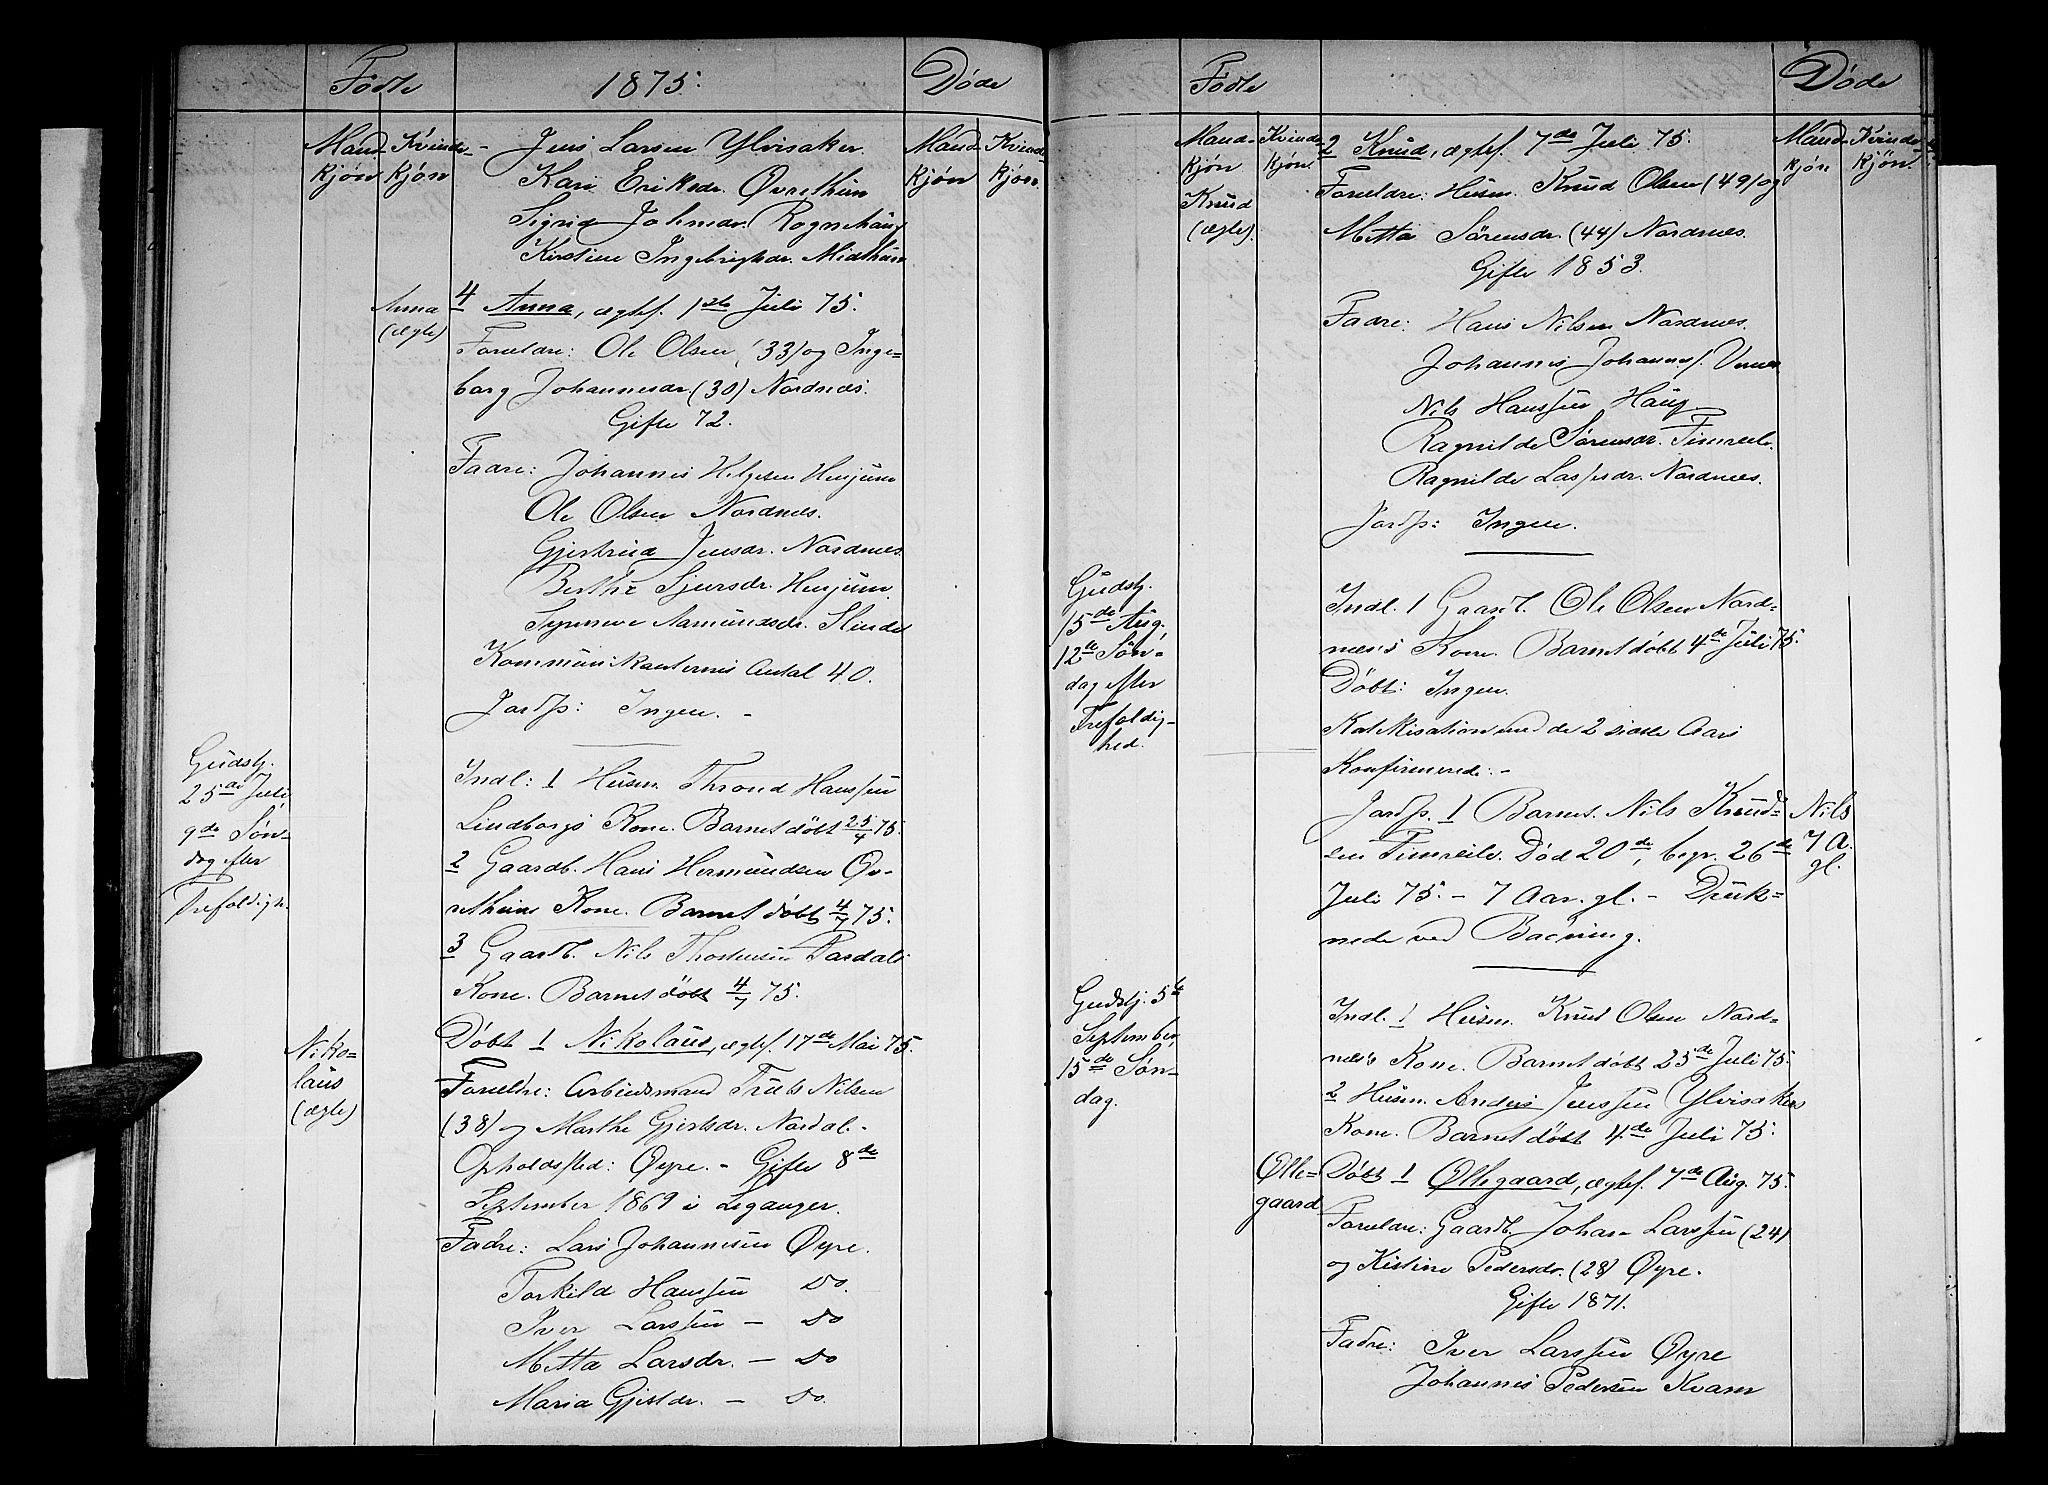 Fødte
1875.
Døde
Mand- Kvinde-
kjøn kjøn
Mand- Kvinde-
kjøn kjøn
Jens Larsen Ylvisaker.
Kari Eriksdr. Øvrethun
Sigrid Johnsdr. Rognehaug
Kirstine Ingebrigtsdr. Midthun
Anna
(ægte)
4 Anna, ægtef. 1ste Juli 75.
Forældre: Ole Olsen, (33) og Inge-
borg Johannesdr. (30) Nordnæs.
Gifte 72.
Fadre: Johannes Helgesen Henjum
Ole Olsen Nordnæs.
Gjertrud Jensdr. Nordnæs.
Berthe Sjursdr. Henjum.
Synneve Aamundsdr. Slinde
Kommunikanternes Antal 40.
Jordfs: Ingen. -
Gudstj.
25de Juli,
9de Søn-
dag efter
Trefoldigh.
Indl: 1 Husm. Thrond Hanssen
Lindborgs Kone. Barnet døbt 25/4 75.
2 Gaardb. Hans Hermundsen Øv-
rethuns Kone. Barnet døbt 4/7 75.
3 Gaardb. Nils Thorstensen Fardals
Kone. Barnet døbt 4/7 75.
Niko-
laus
(ægte)
Døbt 1 Nikolaus, ægtef. 17de Mai 75.
Forældre: Arbeidsmand Truls Nilsen
(38) og Marthe Gjertsdr. Nordal.-
Opholdssted: Øyre. - Gifte 8de
September 1869 i Leganger.
Fadre: Lars Johannesen Øyre.
Torkild Hanssen do.
Iver Larssen - do
Metta Larsdr. - do
Maria Gjertsdr. - do.
Fødte
Døde
Mand- Kvinde-
kjøn kjøn
Mand- Kvinde-
kjøn kjøn
Knud
(ægte).
2 Knud, ægtef. 7de Juli 75.
Forældre: Husm. Knud Olsen (49) og
Metta Sørensdr. (44) Nordnæs.
Gifte 1853.
Fadre: Hans Nilsen Nordnæs.
Johannes Johannes/.
Nils Hanssen Haug
Ragnilde Sørensdr. Timreite.
Ragnilde Lassesdr. Nordnæs.
Jordfs: Ingen.
Gudstj.
15de Aug.
12te Søn-
dag efter
Trefoldig-
hed.
Indl. 1 Gaardb. Ole Olsen Nord-
næs's Kone. Barnet døbt 4de Juli 75.
Døbt: Ingen.
Katekisation med de 2 sidste Aars
Konfirmerede. -
Jordfs. 1 Barnet Nils Knud-
sen Timreite. Død 20de, begr. 26de
Juli 75. - 7 Aar. gl. - Druk-
nede ved Badning.
Nils
7 A.
gl.
Gudstj. 5te
September,
15de Søn-
dag.
Indl. 1 Husm. Knud Olsen Nord-
næs's Kone. Barnet døbt 25de Juli 75.
2 Husm. Anders Jenssen Ylvisakers
Kone. Barnet døbt 4de Juli 75.
Ølle-
gaard
Døbt 1 Øllegaard, ægtef. 7de Aug. 75.
Forældre: Gaardb. Johan Larssen (24)
og Kistine Pedersdr. (28) Øyre.
Gifte 1871.
Fadre: Iver Larssen Øyre
Johannes Pedersen Kvam